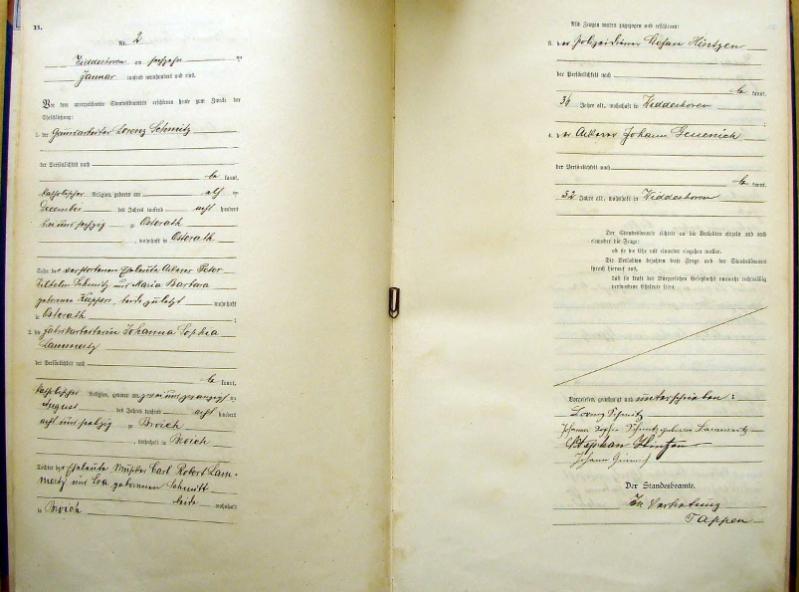 B.
Nr. 2
Hidderhoven am sechzehn ten
Januar tausend neunhundert und eins.
Vor dem unterzeichneten Standesbeamten erschienen heute zum Zweck der
Eheschließung:
1. der Lorenz Schmitz
der Persönlichkeit nach
be kannt,
katholischer Religion, geboren am elf ten
Dezember des Jahres tausend acht hundert
sechzig zu Osterath
, wohnhaft in Osterath
Sohn der verstorbenen Eheleute Ackerer Peter
Wilhelm Schmitz und Maria Barbara
geborenen Küppers, beide zuletzt wohnhaft
in Osterath ;
2. die Fabrikarbeiterin Johanna Sophia
Lammertz
der Persönlichkeit nach
be kannt,
katholischer Religion, geboren am zwei und zwanzigsten
August des Jahres tausend acht hundert
acht und zu Broich
, wohnhaft in Broich
Tochter der Eheleute Musiker Carl Robert Lam-
mertz und geborenen Schmitt
beide wohnhaft
in Broich
Als Zeugen waren zugezogen und erschienen:
3. der Polizeidiener Stefan Hintzen
der Persönlichkeit nach
be kannt,
36 Jahre alt, wohnhaft in
4. der Ackerer Johann
der Persönlichkeit nach
be kannt,
32 Jahre alt, wohnhaft in
Der Standesbeamte richtete an die Verlobten einzeln und nach
einander die Frage:
ob sie die Ehe mit einander eingehen wollen.
Die Verlobten bejahten diese Frage und der Standesbeamte
sprach hierauf aus,
daß sie kraft des Bürgerlichen Gesetzbuchs nunmehr rechtmäßig
verbundene Eheleute seien.
Vorgelesen, genehmigt und unterschrieben:
Lorenz Schmitz
Johanna Sophia Schmitz geborene Lammertz
Stephan Hintzen
Johann
Der Standesbeamte.
In Vertretung
Tappen